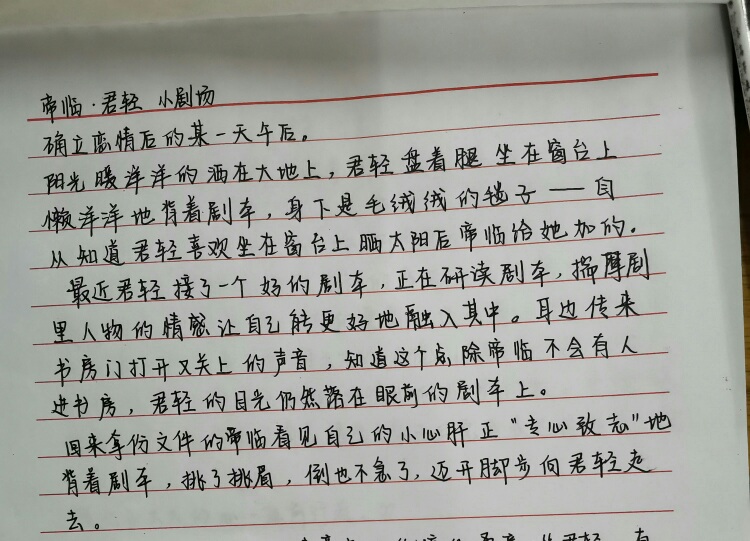 帝临·君轻 小剧场
确立恋情后的某一天午后。
阳光暖洋洋的洒在大地上，君轻盘着腿坐在窗台上
懒洋洋地背着剧本，身下是毛绒绒的毯子——自
从知道君轻喜欢坐在窗台上晒太阳后帝临给她加的。
最近君轻接了一个好的剧本，正在研读剧本，揣摩剧
里人物的情感让自己能更好地融入其中。耳边传来
书房门打开又关上的声音，知道这个点除帝临不会有人
进书房，君轻的目光仍然落在眼前的剧本上。
回来拿份文件的帝临看见自己的小心肝正“专心致志”地
背着剧本，挑了挑眉，倒也不急了，迈开脚步向君轻走
去。